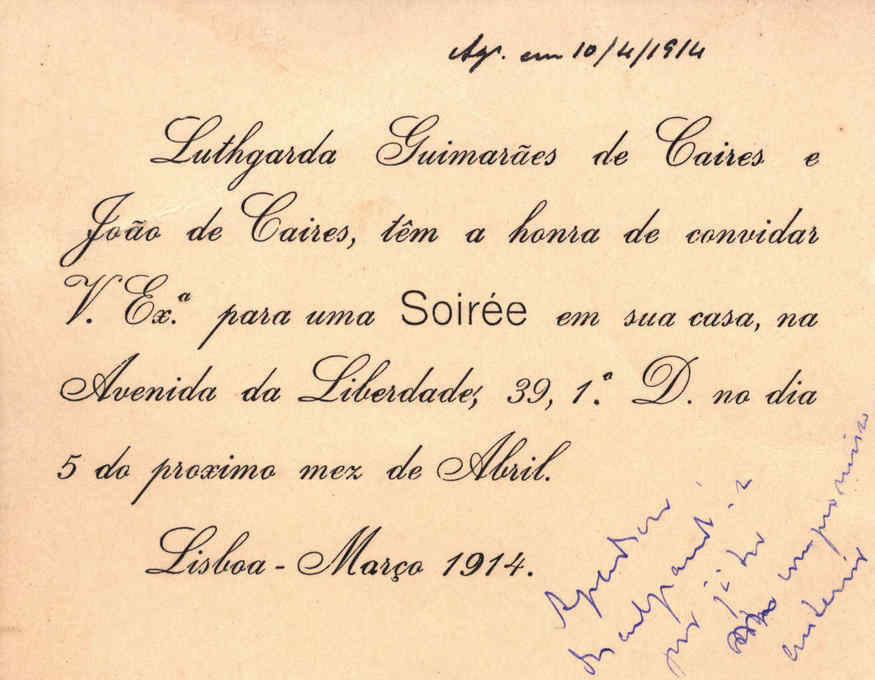 Ag. em 10/4/1914
Luthgarda Guimarães de Caires e
João de Caires, têm a honra de convidar
V. Ex.ª para uma Soirée em sua casa, na
Avenida da Liberdade, 39, 1.º D. no dia
5 do proximo mez de Abril.
Lisboa - Março 1914.
Agradecer
desculpando-se
por já ter
compromisso
anterior